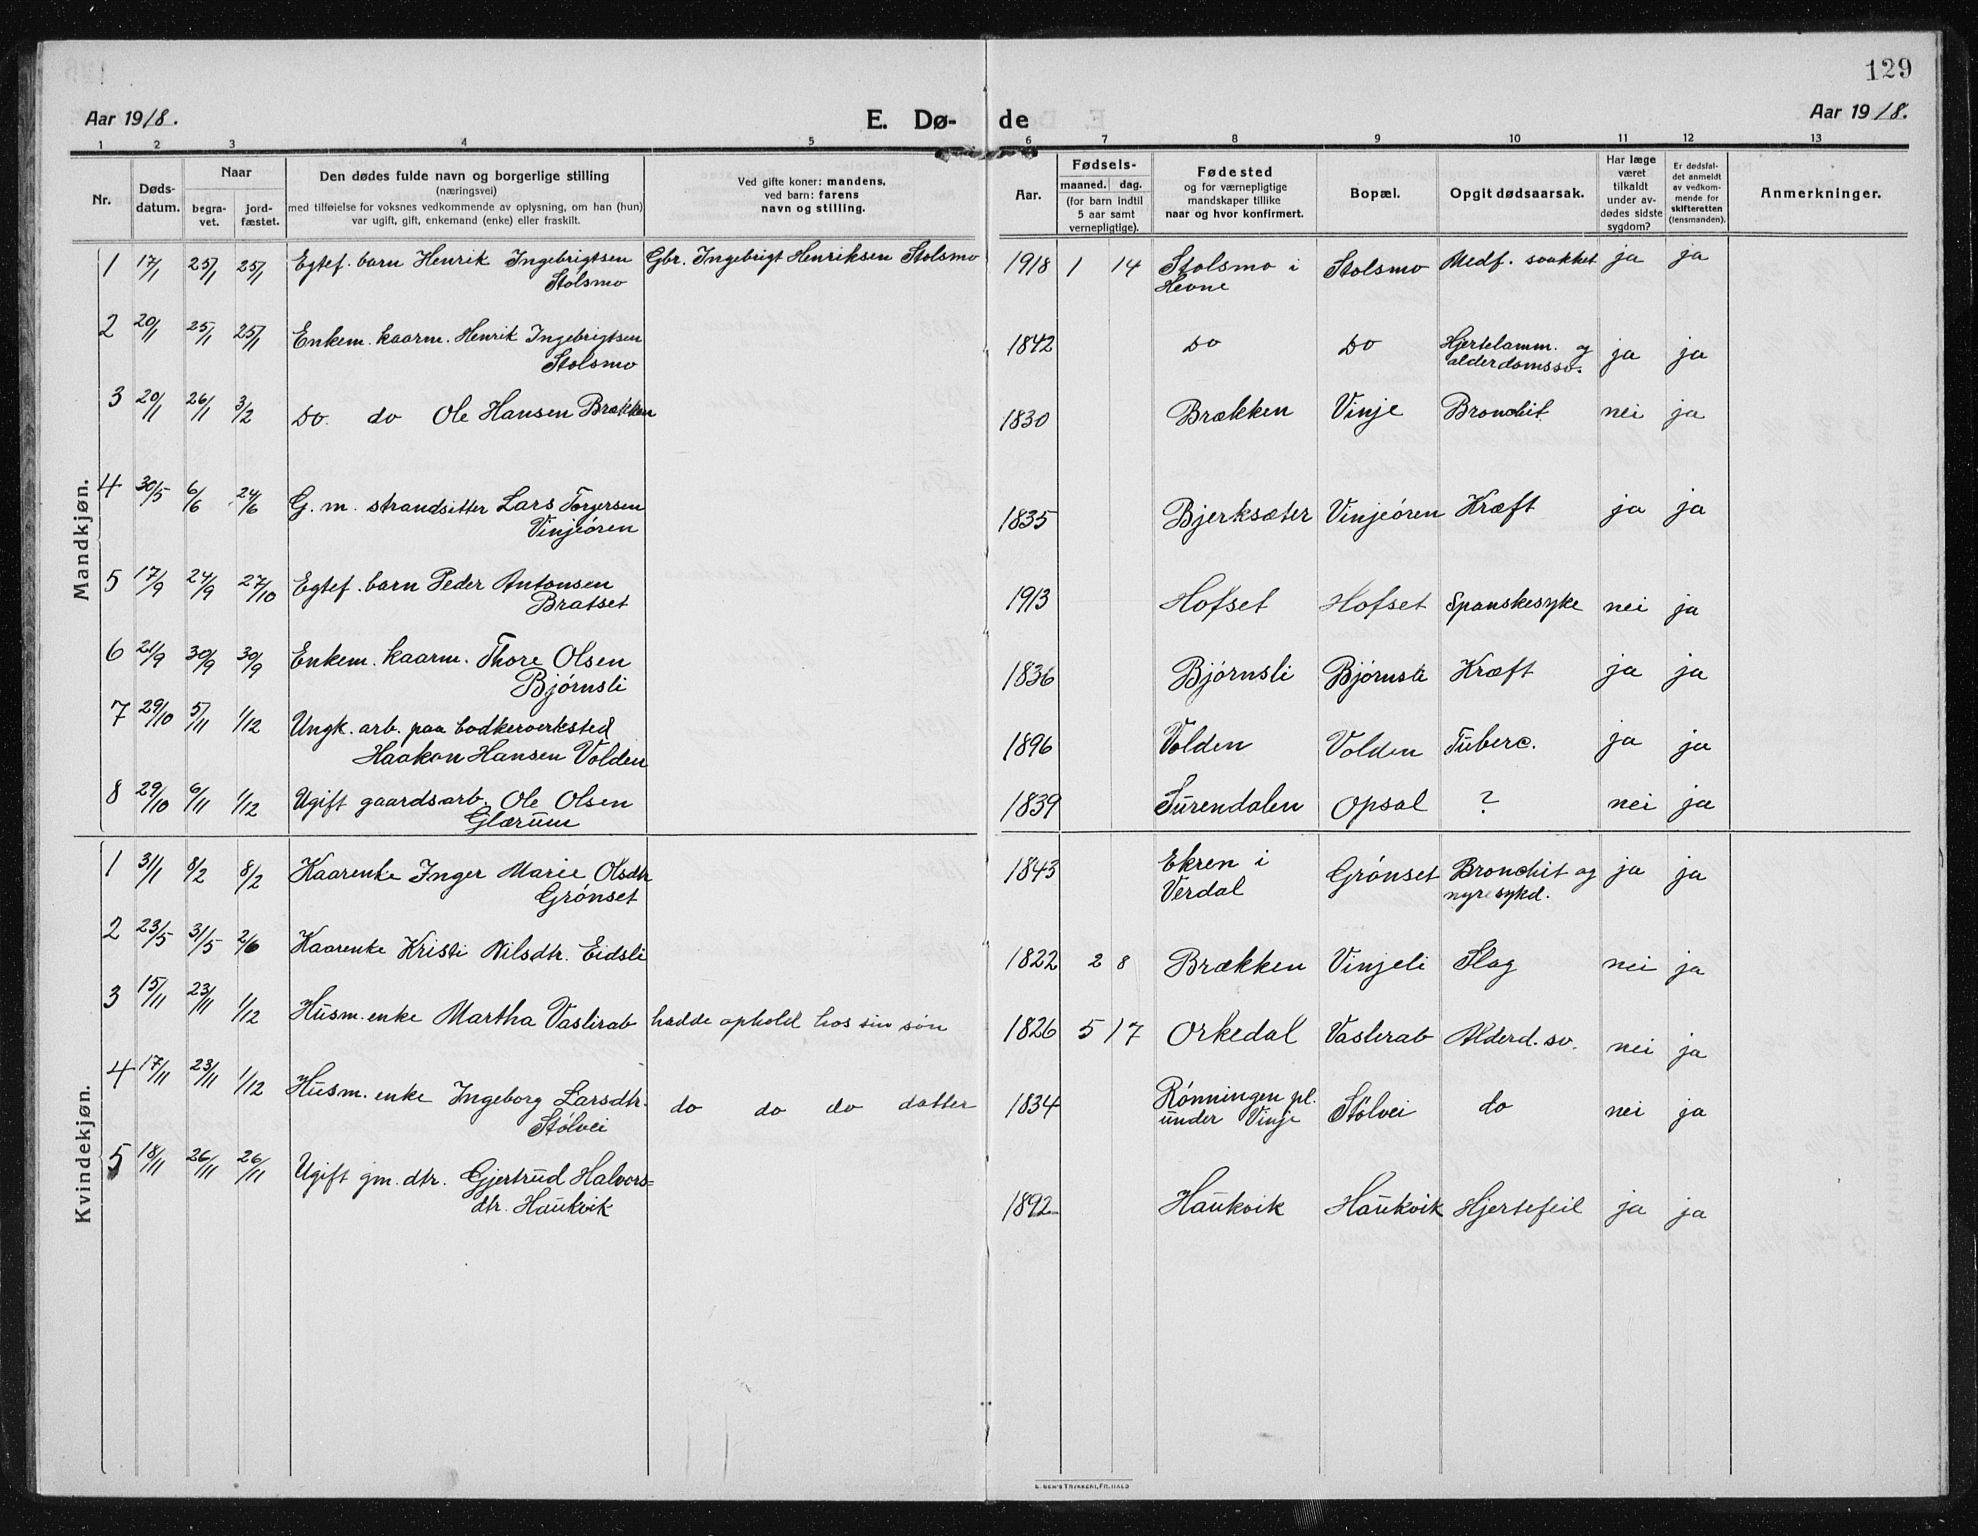 129
Aar 1918. E. Dø- de Aar 1918.
1 2 3 4 5 6 7 8 9 10 11 12 13
Nr. Døds-datum. Naar begra-vet. jord-fæstet. Den dødes fulde navn og borgerlige stilling (næringsvei) med tilføielse for voksnes vedkommende av oplysning, om han (hun) var ugift, gift, enkemand (enke) eller fraskilt. Ved gifte koner: mandens, ved barn: farens navn og stilling. Aar. Fødsels- maaned. dag. (for barn indtil 5 aar samt vernepligtige). Fødested og for værnepligtige mandskaper tillike naar og hvor konfirmert. Bopæl. Opgit dødsaarsak. Har læge været tilkaldt under av-dødes sidste sygdom? Er dødsfal-det anmeldt av vedkom-mende for skifteretten (lensmanden). Anmerkninger.
Mandkjøn.
1 17/1 25/1 25/1 Egtef. barn Henrik Ingebrigtsen Gbr. Ingebrigt Henriksen Stolsmo 1918 1 14 Stolsmo i Stolsmo Medf. svakhet ja ja
Stolsmo Hevne
2 20/1 25/1 25/1 Enkem. kaarm. Henrik Ingebrigtsen 1842 Do Do Hjertelamm. og ja ja
Stolsmo alderdomssv.
3 20/1 26/1 3/2 Do. do Ole Hansen Brækken 1830 Brækken Vinje Bronchit nei ja
4 30/5 6/6 24/6 G. m. strandsitter Lars Torgersen 1835 Bjerksæter Vinjeøren Kræft ja ja
Vinjeøren
5 17/9 24/9 27/10 Egtef. barn Peder Antonsen 1913 Hofset Hofset Spanskesyke nei ja
Bratset
6 21/9 30/9 30/9 Enkem. kaarm. Thore Olsen 1836 Bjørnsli Bjørnsli Kræft ja ja
Bjørnsli
7 29/10 5/11 1/12 Ungk. arb. paa bødkerverksted 1896 Volden Volden Tuberc. ja ja
Haakon Hansen Volden
8 29/10 6/11 1/12 Ugift gaardsarb. Ole Olsen 1839 Surendalen Opsal ? nei ja
Glærum
Kvindekjøn.
1 31/1 8/2 8/2 Kaarenke Inger Marie Olsdtr 1843 Ekren i Grønset Bronchit og ja ja
Grønset Verdal nyresykd.
2 23/5 31/5 2/6 Kaarenke Kristi Nilsdtr. Eidsli 1822 2 8 Brækken Vinjeli Slag nei ja
3 15/11 23/11 1/12 Husm. enke Martha Vaslirab hadde ophold hos sin søn 1826 5 17 Orkedal Vaslirab Alderd. sv. nei ja
4 17/11 23/11 1/12 Husm. enke Ingeborg Larsdtr. do do do datter 1834 Rønningen pl. Stølvei do nei ja
Stølvei under Vinje
5 18/11 26/11 26/11 Ugift gm. dtr. Gjertrud Halvors= 1892 Haukvik Haukvik Hjertefeil ja ja
dtr. Haukvik